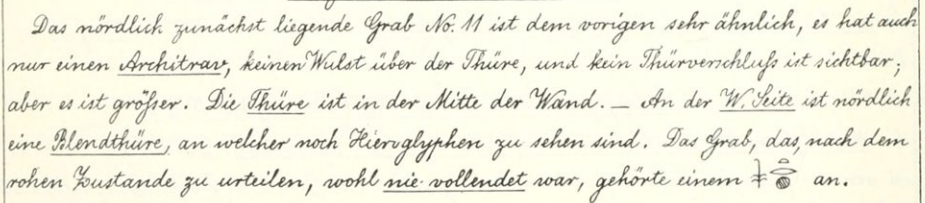 Das nördlich zunächst liegende Grab No. 11 ist dem vorigen sehr ähnlich, es hat auch
nur einen Architrav, keinen Wulst über der Thüre, und kein Thürverschluſs ist sichtbar;
aber es ist gröſser. Die Thüre ist in der Mitte der Wand. — An der W. Seite ist nördlich
eine Blendthüre, an welcher noch Hieroglyphen zu sehen sind. Das Grab, das, nach dem
rohen Zustande zu urteilen, wohl nie vollendet war, gehörte einem an.